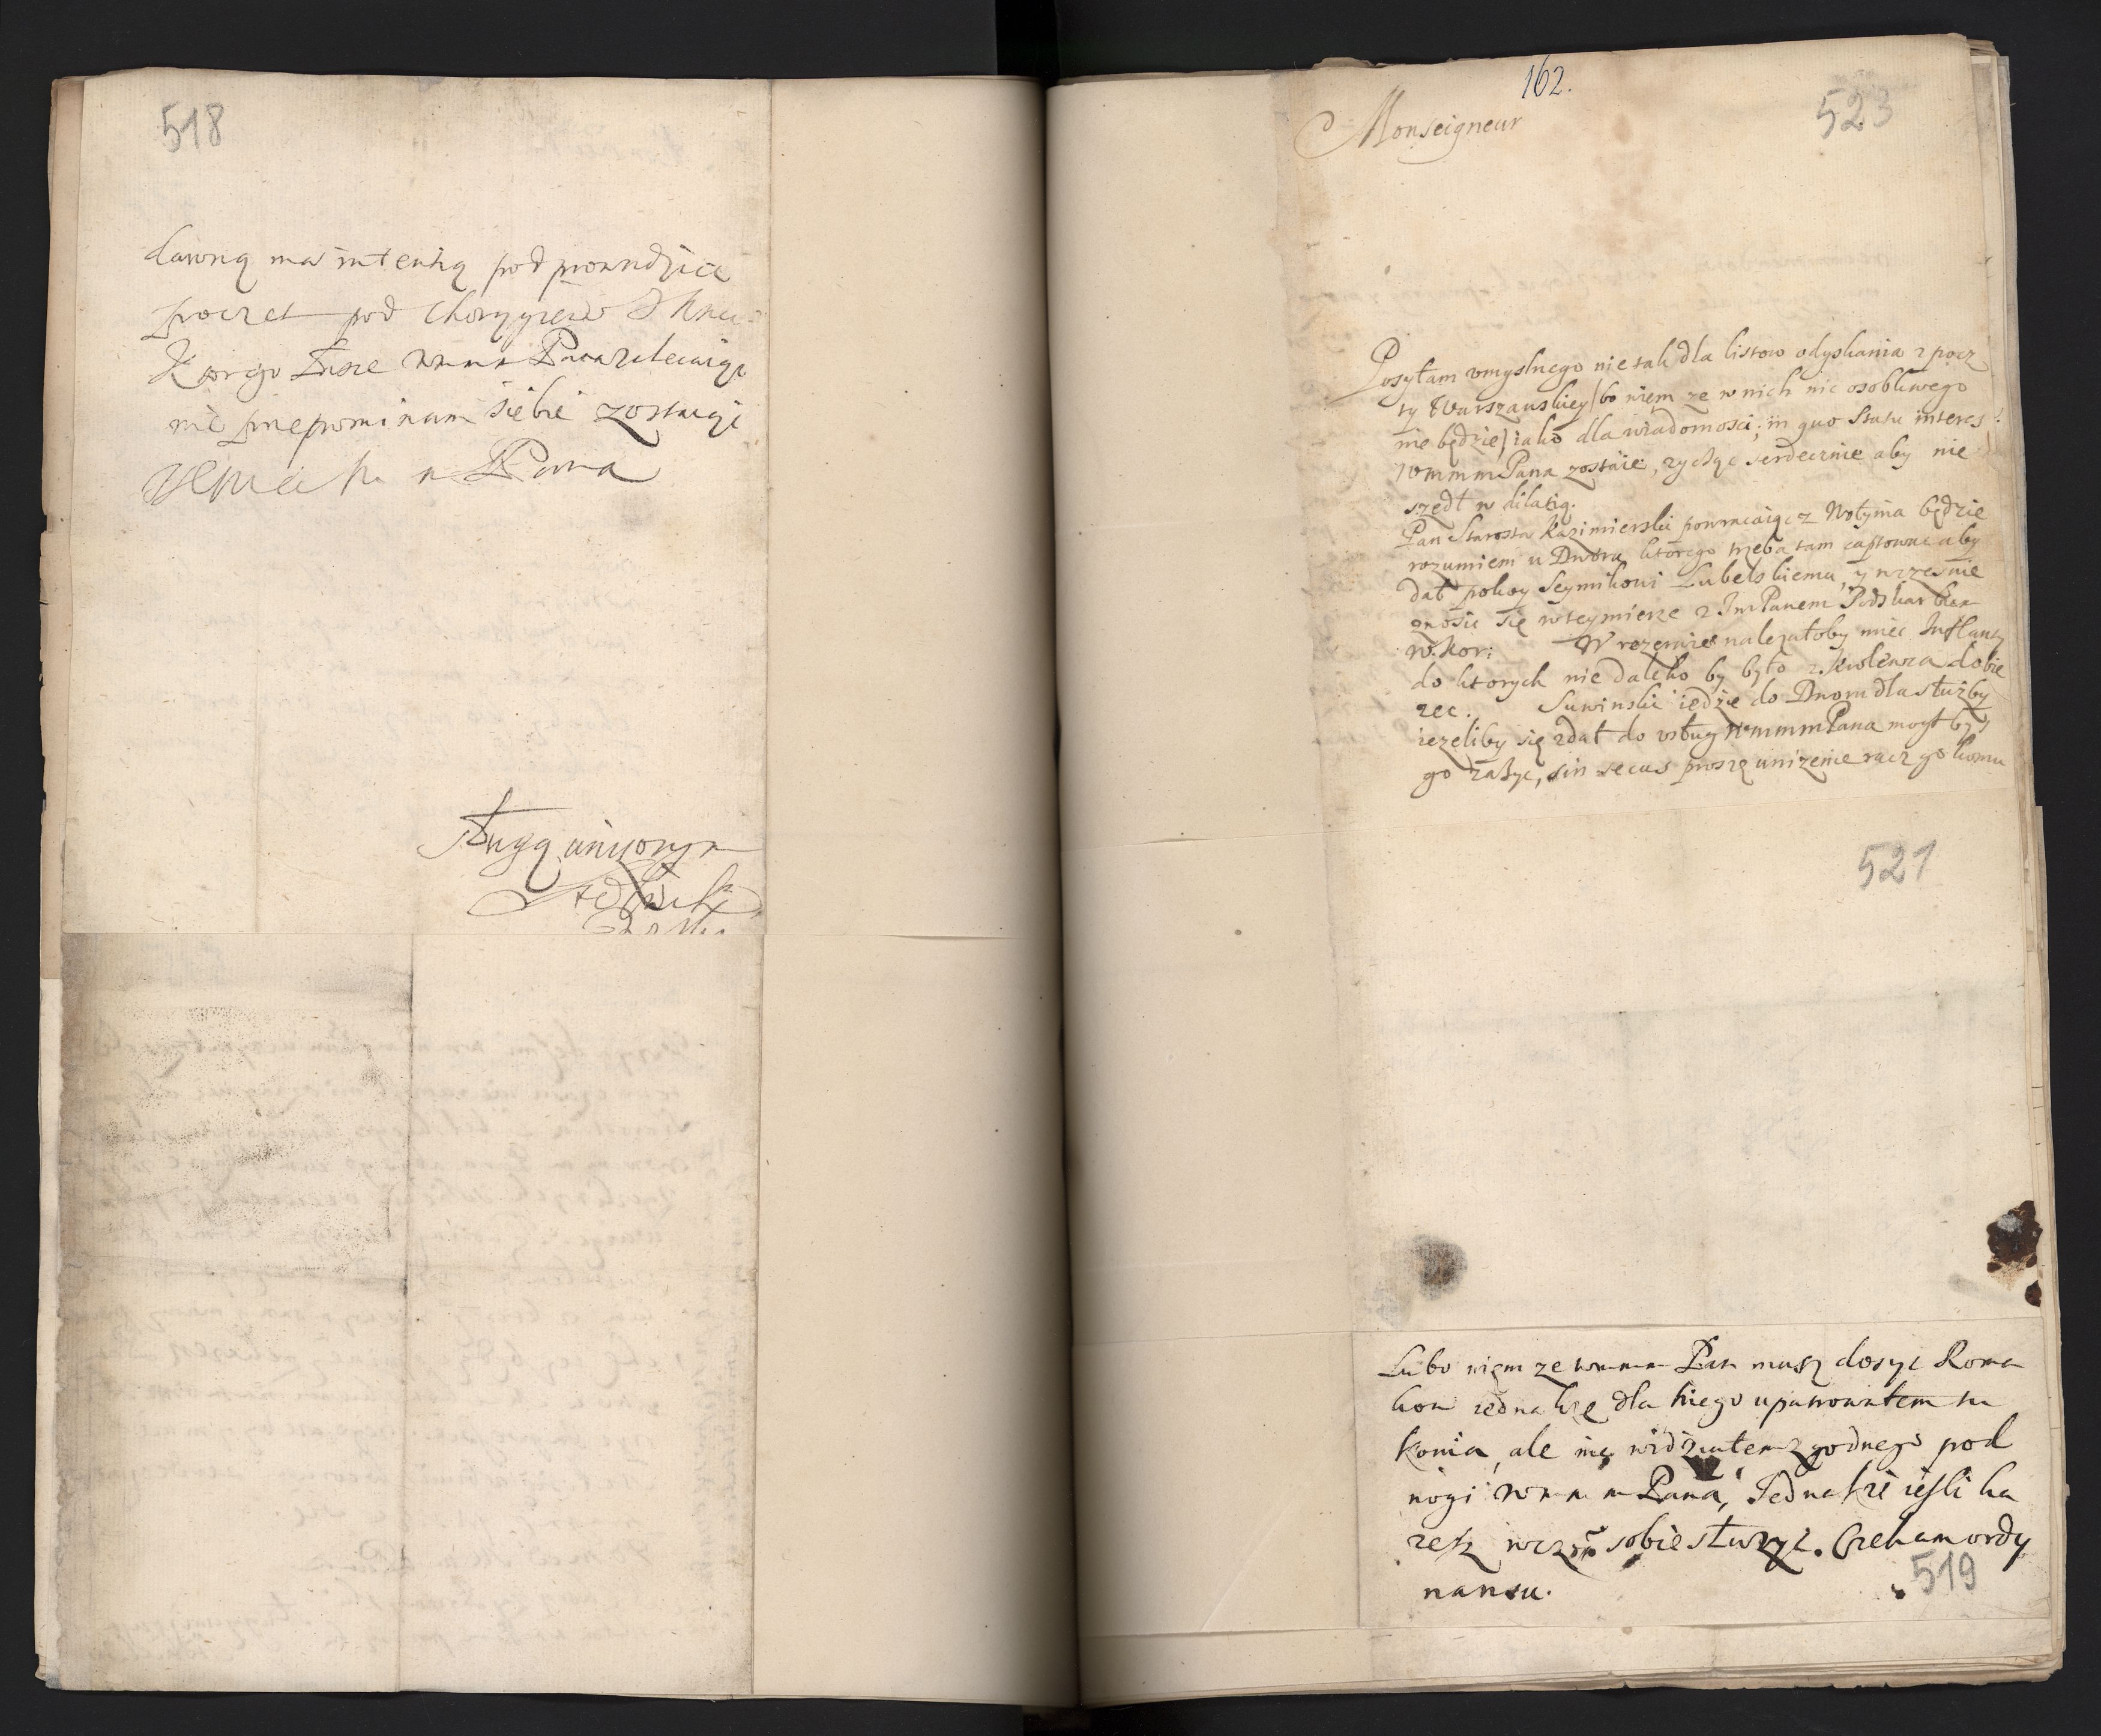 518
dawną ma intentią pod prowadzic
poczet pod Choryzew
Ktorego łasce zalecaiąc
nie siebie zostaiąc
Pana
sługą uniżonym
162.
523
Monseigneur
Posyłam vmyslnego nie tak dla listow odyskania z pocz
ty Warszawskiey / bo wiem ze w nich nic osobliwego
nie będzie / iako dla wiadomosci, in quo statu interes
Wmmm Pana zostaie, zycząc serdecznie aby nie
szedł w dilatią.
Pan Starosta Kazimierski powracaiąc z Wołynia będzie
rozumiem u Dworu ktorego trzeba tam captowac aby
dał pokoy Seymikowi Lubelskiemu, y wczesnie
znosic się w tey mierze z Im Panem Podskarbim
W. Kor: W rezerwie należałoby miec Inflanty
do ktorych nie daleko by było z Krolewca dobie
zec. Suwinski iedzie do Dworu dla służby
iezeliby się zdał do vsług Wmmm Pana mogłbyś
go zażyc, sin secus proszę uniżenie racz go komu
521
Lubo wiem ze wmmm Pan masz dosyc Roma
kow iednakże dla niego upatrowałem tu
konia, ale nie widziałem zgodnego pod
nogi wmmm Pana, Jednakże iesli ka
zesz sobie służyc. Czekam ordy
nansu.
519